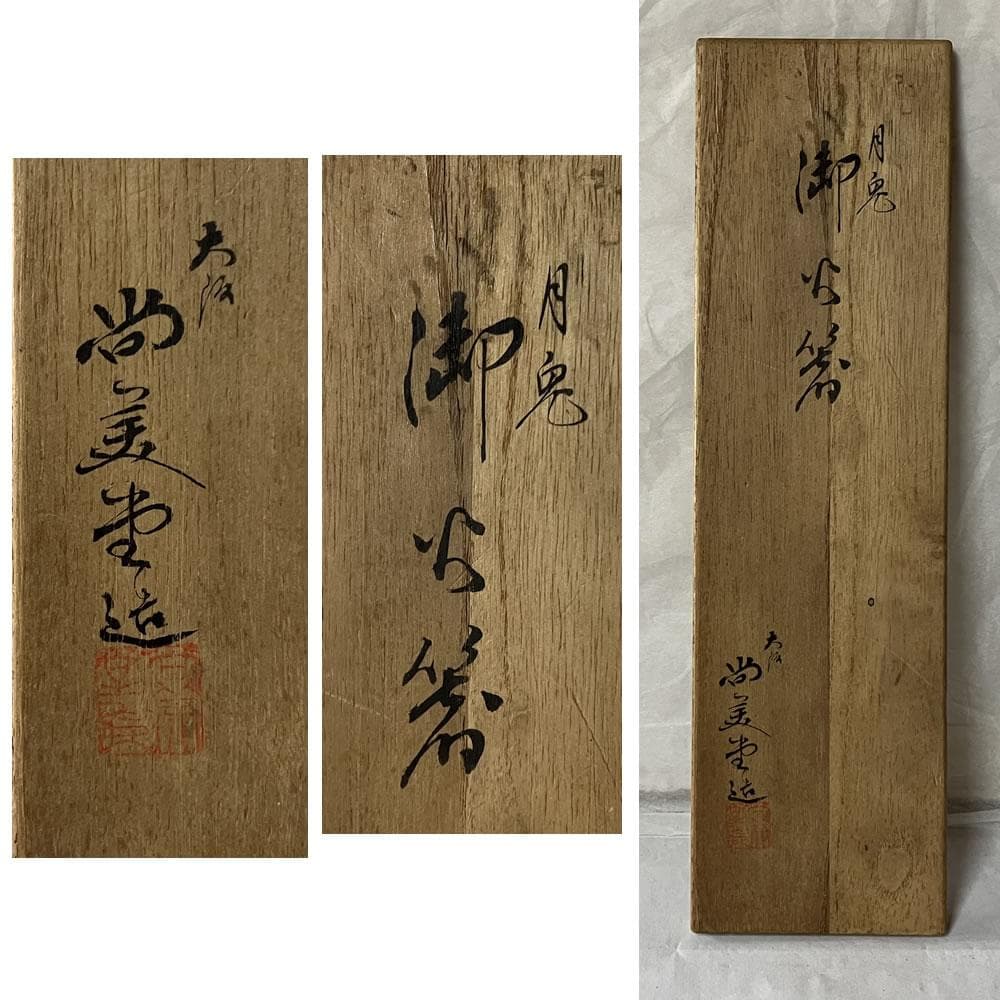 大阪
尚美堂造
月兎
御火箸
月兎
御火箸
大阪
尚美堂造